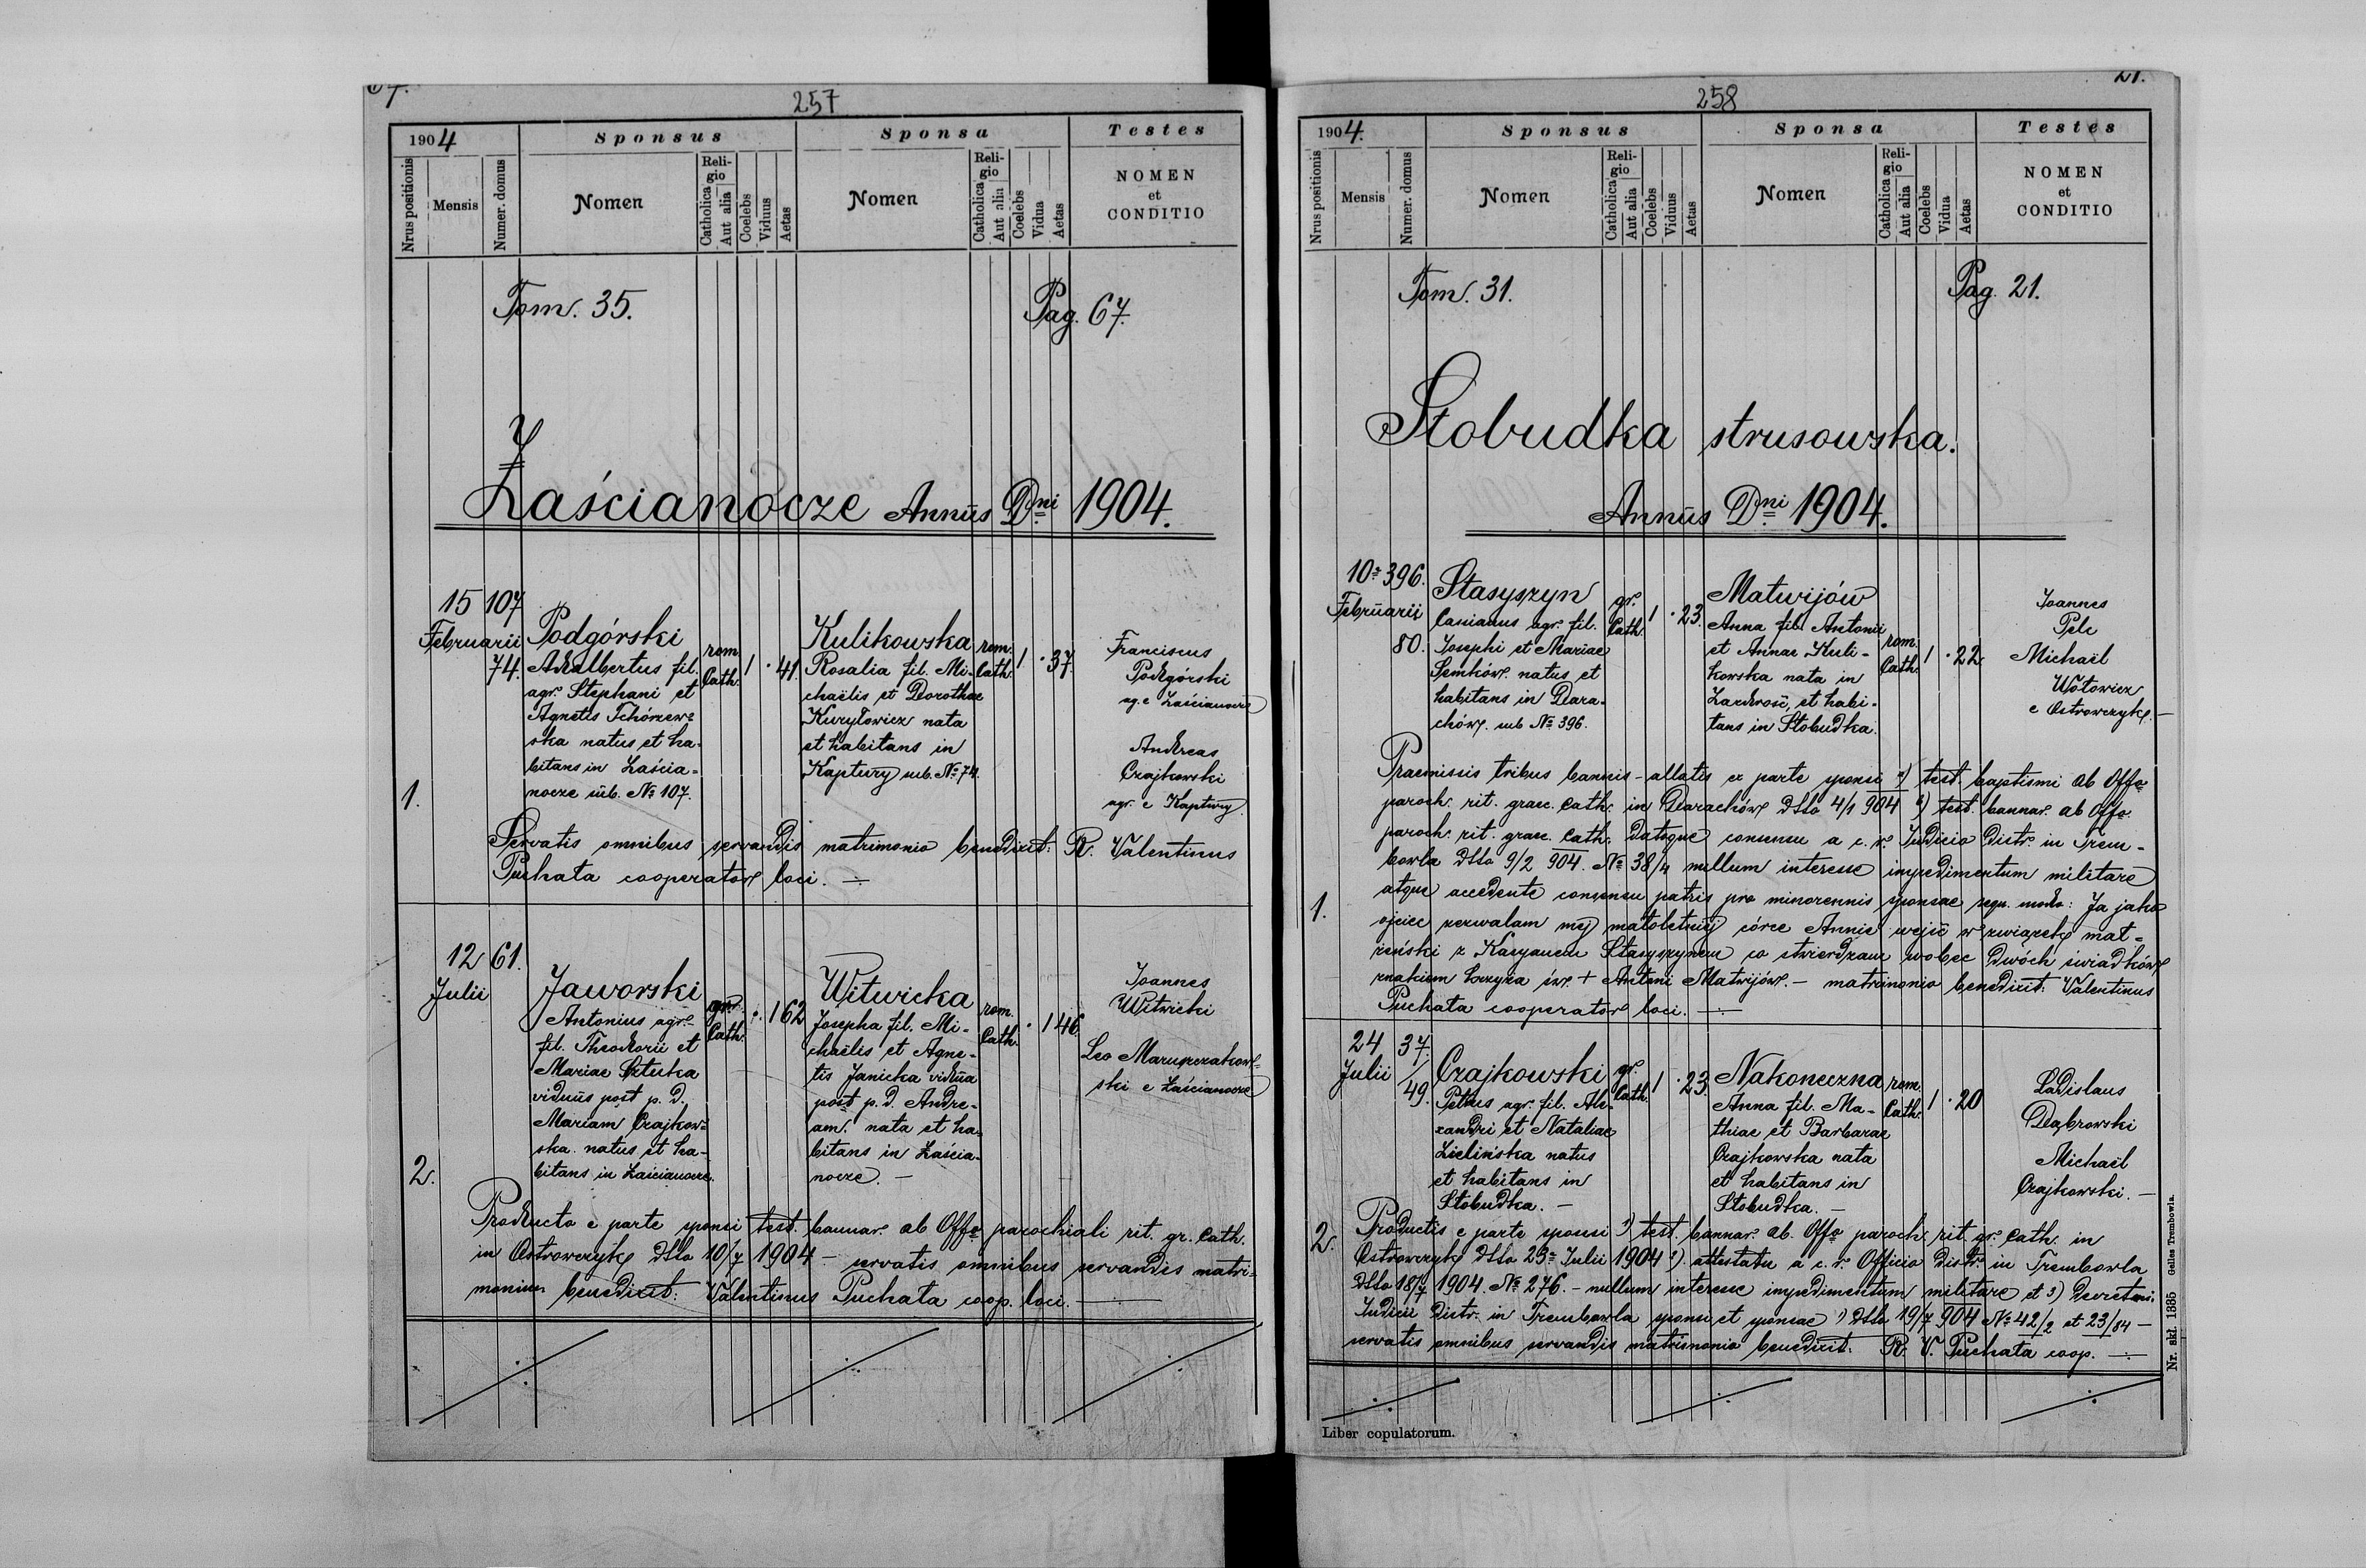 67.
257
1904
Sponsus
Sponsa
Testes
Nrus positionis
Mensis
Numer. domus
Nomen
Religio
Catholica
Aut alia
Coelebs
Viduus
Aetas
Nomen
Religio
Catholica
Aut alia
Coelebs
Vidua
Aetas
NOMEN
et
CONDITIO
Tom. 35.
Pag. 67.
Łaścianocze Annus Dni 1904.
1.
15
Februarii
107
74.
Podgórski
Adalbertus fil.
agr. Stephani et
Agnetis Tchórzew-
ska natus et ha-
bitans in Łaścia-
nocze sub. No 107.
rom.
Cath.
1 · 41
Kulikowska
Rosalia fil. Mi-
chaëlis et Dorothae
Kuryłowicz nata
et habitans in
Kaptury sub. No 74.
rom.
Cath.
1 · 37
Franciscus
Podgórski
ag. e Łaścianocze
Andreas
Czajkowski
agr. e Kaptury
Servatis omnibus servandis matrimonio benedixit: R. Valentinus
Puchata cooperator loci. —
2.
12
Julii
61.
Jaworski
Antonius agr.
fil. Theodorii et
Mariae Sztuka
viduus post p. d.
Mariam Czajkow-
ska natus et ha-
bitans in Łaścianocze.
gr.
Cath.
· 1 62
Witwicka
Josepha fil. Mi-
chaëlis et Agne-
tis Janicka vidua
post p. d. Andre-
am. nata et ha-
bitans in Łaścia-
nocze. —
rom.
Cath.
· 1 46
Joannes
Witwicki
Leo Maruszczakow-
ski e Łaścianocze
Producto e parte sponsi test. bannar. ab Offo parochiali rit. gr. Cath.
in Ostrowczyk ddto 10/7 1904 — servatis omnibus servandis matri-
monium benedixit: Valentinus Puchata coop. loci. —
21.
258
1904.
Sponsus
Sponsa
Testes
Nrus positionis
Mensis
Numer. domus
Nomen
Religio
Catholica
Aut alia
Coelebs
Viduus
Aetas
Nomen
Religio
Catholica
Aut alia
Coelebs
Vidua
Aetas
NOMEN
et
CONDITIO
Tom. 31.
Pag. 21.
Słobudka strusowska.
Annus Dni 1904.
1.
10
Februarii
396.
80.
Stasyszyn
Casianus agr. fil.
Josephi et Mariae
Semków. natus et
habitans in Dara-
chów. sub No 396.
gr.
Cath.
1 · 23.
Matwijów
Anna fil. Antonii
et Annae Kuli-
kowska nata in
Zazdrość, et habi-
tans in Słobudka.
rom.
Cath.
1 · 22
Joannes
Pelc
Michaël
Wołowicz
e Ostrowczyk. —
Praemissis tribus bannis — allatis ex parte sponsi a) test. baptismi ab Offo
paroch. rit. graec. Cath. in Darachów ddto 4/1 904 b) test. bannar. ab Offo
paroch. rit. graec. Cath. datoque consensu a c. r. Judicio Distr. in Trem-
bowla ddto 9/2 904. No 38/4 nullum interesse impedimentum militare
atque accedente consensu patris pro minorennis sponsae sequ. modo: Ja jako
ojciec zezwalam mej małoletniej córce Annie wejść w związek mał-
żeński z Kasyanem Stasyszynem co stwierdzam wobec dwóch świadków
znakiem krzyża św. + Antoni Matwijów. — matrimonio benedixit: Valentinus
Puchata cooperator loci. —
2.
24
Julii
37.
49.
Czajkowski
Petrus agr. fil. Ale-
xandri et Nataliae
Zielińska natus
et habitans in
Słobudka. —
gr.
Cath.
1 · 23.
Nakoneczna
Anna fil. Ma-
thiae et Barbarae
Czajkowska nata
et habitans in
Słobudka. —
rom.
Cath.
1 · 20
Ladislaus
Dąbrowski
Michaël
Czajkowski. —
Productis e parte sponsi 1) test. bannar. ab. Offo paroch. rit. gr. Cath. in
Ostrowczyk ddto 23 Julii 1904 2). attestatu a c. r. Officio Distr. in Trembowla
ddto 18/7 1904 No 276. — nullum interesse impedimentum militare et 3)
Judicii Distr. in Trembowla sponsi et sponsae ddto 19/7 904 No 42/2 et 23/84 —
servatis omnibus servandis matrimonio benedixit. R. V. Puchata coop. —
Liber copulatorum.
Nr. skł. 1335 Gelles Trembowla.